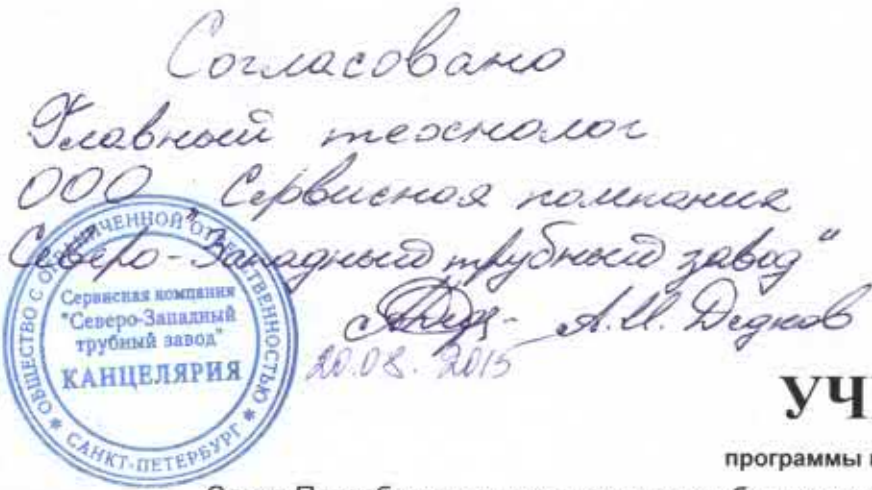 Согласовано
Главный технолог
ООО "Сервисная компания
Северо-Западный трубный завод"
А.И. Дедков
20.08.2015
ОБЩЕСТВО С ОГРАНИЧЕННОЙ ОТВЕТСТВЕННОСТЬЮ * САНКТ-ПЕТЕРБУРГ *
Сервисная компания
"Северо-Западный
трубный завод"
КАНЦЕЛЯРИЯ
УЧ
программы